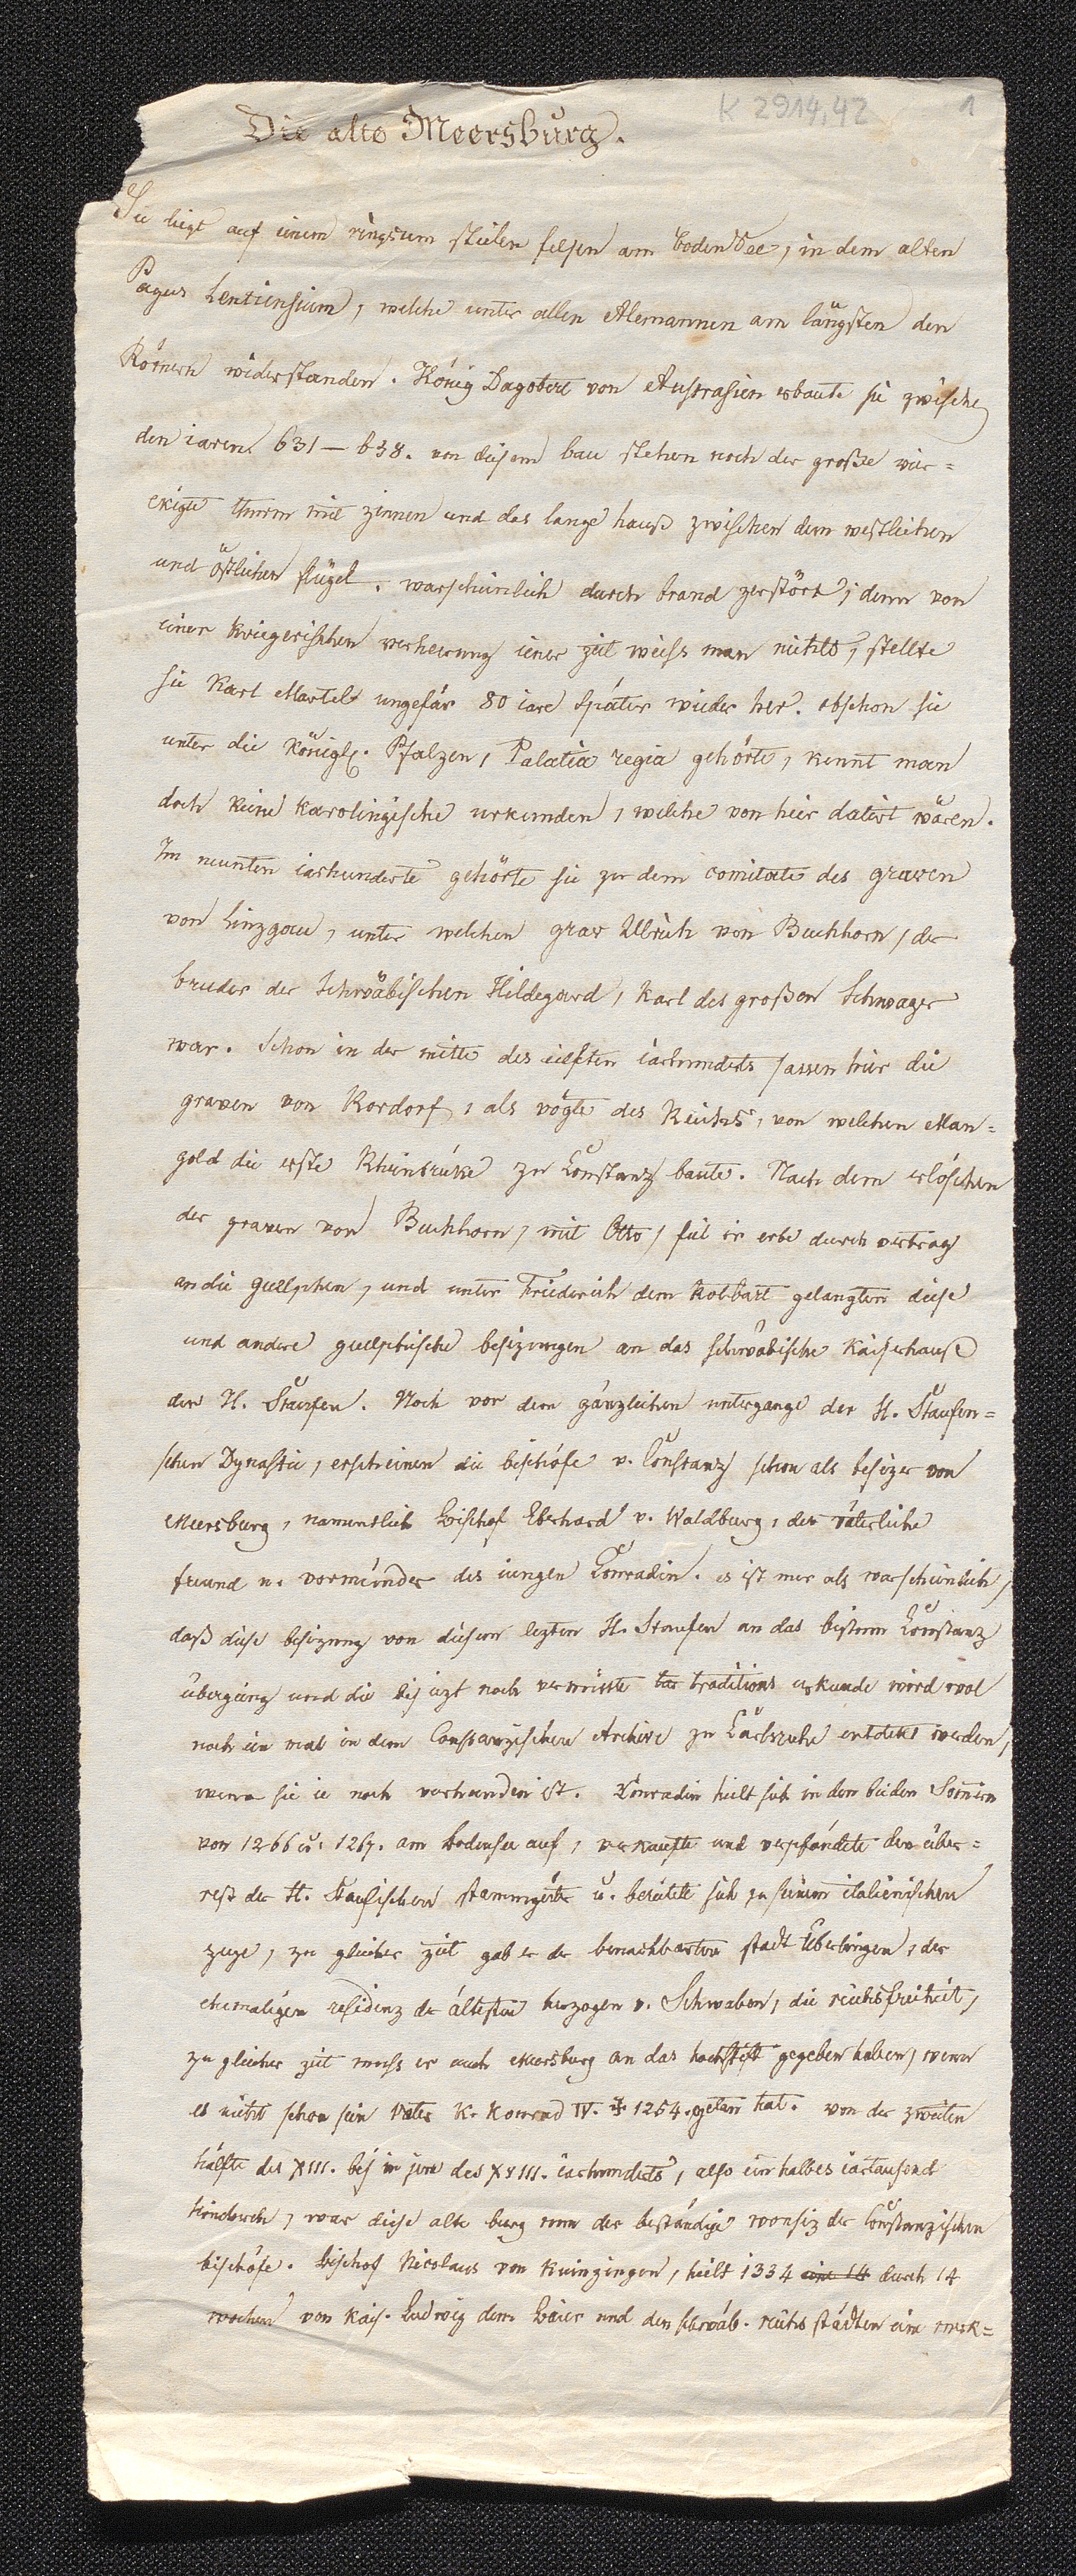 K 2914,42 1
Die alte Meersburg.
Sie liegt auf einem ringsum steilen felsen am Bodensee, in dem alten
Pagus Lentiensium, welche unter allen Alemannen am längsten den
Römern widerstanden. König Dagobert von Austrasien erbaute sie zwischen
den iaren 631 — 638. von diesem bau stehen noch der große vier=
ekigte thurm mit zinnen und das lange hauß zwischen dem westlichen
und östlichen flügel. warscheinlich durch brand zerstört, denn von
einer kriegerischen verheerung iener zeit weiss man nichts, stellte
sie Karl Martel ungefär 80 iare später wieder her. obschon sie
unter die Königl. Pfalzen, Palatia regia gehörte, kennt man
doch keine karolingische urkunden, welche von hier datirt wären.
Im neunten iarhunderte gehörte sie zu dem comitate des graven
von Linzgau, unter welchen grav Ulrich von Buchhorn, der
bruder der Schwäbischen Hildegard, Karl des großen Schwager
war. Schon in der mitte des eilften iarhunderts sassen hier die
graven von Rordorf, als vögte des Reichs, von welchen Man=
gold die erste Rheinbrüke zu Constanz baute. Nach dem erlöschen
der graven von Buchhorn, mit Otto, fiel ir erbe durch vertrag
an die guelphen, und unter Friederich dem Rotbart gelangten diese
und andere guelphische besizungen an das schwäbische Kaiserhauß
der H. Staufen. Noch vor dem gänzlichen untergange der H. Staufen=
schen Dynastie, erscheinen die bischöfe v. Constanz schon als besizer von
Meersburg, namentlich Bischof Eberhard v. Waldburg, der väterliche
freund u. vormünder des iungen Conradin. es ist mer als warscheinlich,
daß diese besizung von diesem lezten H. Staufen an das bistum Constanz
übergieng und die bis iezt noch vermisste traditions urkunde wird wol
noch ein mal in dem Constanzischen Archive zu Carlsruhe entdekt werden,
wenn sie ie noch vorhanden ist. Conradin hielt sich in den beiden Somern
von 1266 u. 1267. am bodensee auf, verkaufte und verpfändete den über=
rest der H. Staufischen stammgüter u. bereitete sich zu seinem italienischen
zuge, zu gleicher zeit gab er der benachbarten stadt Überlingen, der
ehemaligen residenz der ältesten herzogen v. Schwaben, die reichsfreiheit,
zu gleicher zeit muss er auch Meersburg an das hochstift gegeben haben, wenn
es nicht schon sein Vater K. Konrad IV. ‡ 1254. getan hat. von der zweiten
hälfte des XIII. bis in des XVIII. iarhunderts, also ein halbes iartausend
hindurch, war diese alte burg nun der beständige wonsiz der Constanzischen
bischöfe. bischof Nicolaus von Kuinzingen, hielt 1334 eine 14 durch 14
wochen von Kais. Ludwig dem Baier und den schwäb. reichs städten eine merk=